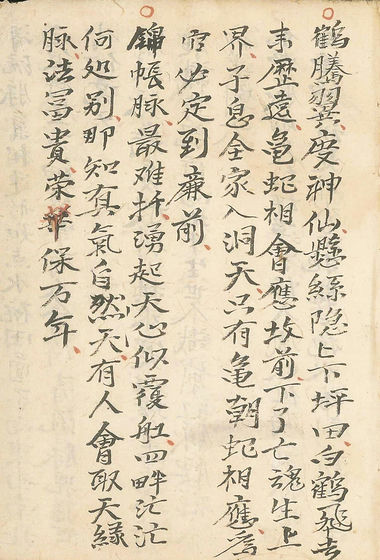 鶴騰翼度神仙懸絲隐上下坪田白鶴飛去
来歷遠亀蛇相會應坟前下了亡魂生上
界子息全家入洞天只有亀朝蛇相應為
官必定到廉前
錦帳脉最难扦湧起天心似覆舡四畔茫茫
何処别那知真氣自然天有人會取天緣
脉法冨貴荣華保万年